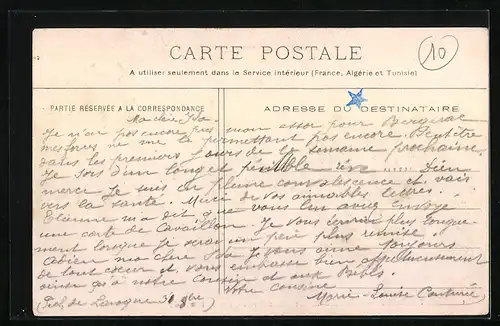 10
CARTE POSTALE
A utiliser seulement dans le Service intérieur (France, Algérie et Tunisie)
PARTIE RÉSERVÉE A LA CORRESPONDANCE
ADRESSE DU DESTINATAIRE
Ma chère
Je n'ai pas encore pris mon essor pour Bergerac
mes forces ne me le permettant pas encore. Peut être
dans les premiers jours de la semaine prochaine.
Je sors d'un long et pénible Dieu
merci Je suis en pleine convalescence et vais
vers la santé. Merci de vos aimables lettres.
Etienne m'a dit que vous lui avez envoyé
une carte de Cavaillon. Je vous écrirai plus longue-
ment lorsque je serai un peu plus remise.
Adieu ma chère Je vous aime toujours
de tout coeur et vous embrasse bien affectueusement
ainsi qu'à notre cousin et aux Bébés.
Votre cousine
Marie-Louise